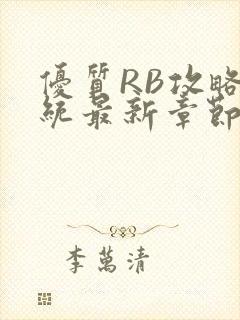 優質RB攻略
統最新章節
李萬清